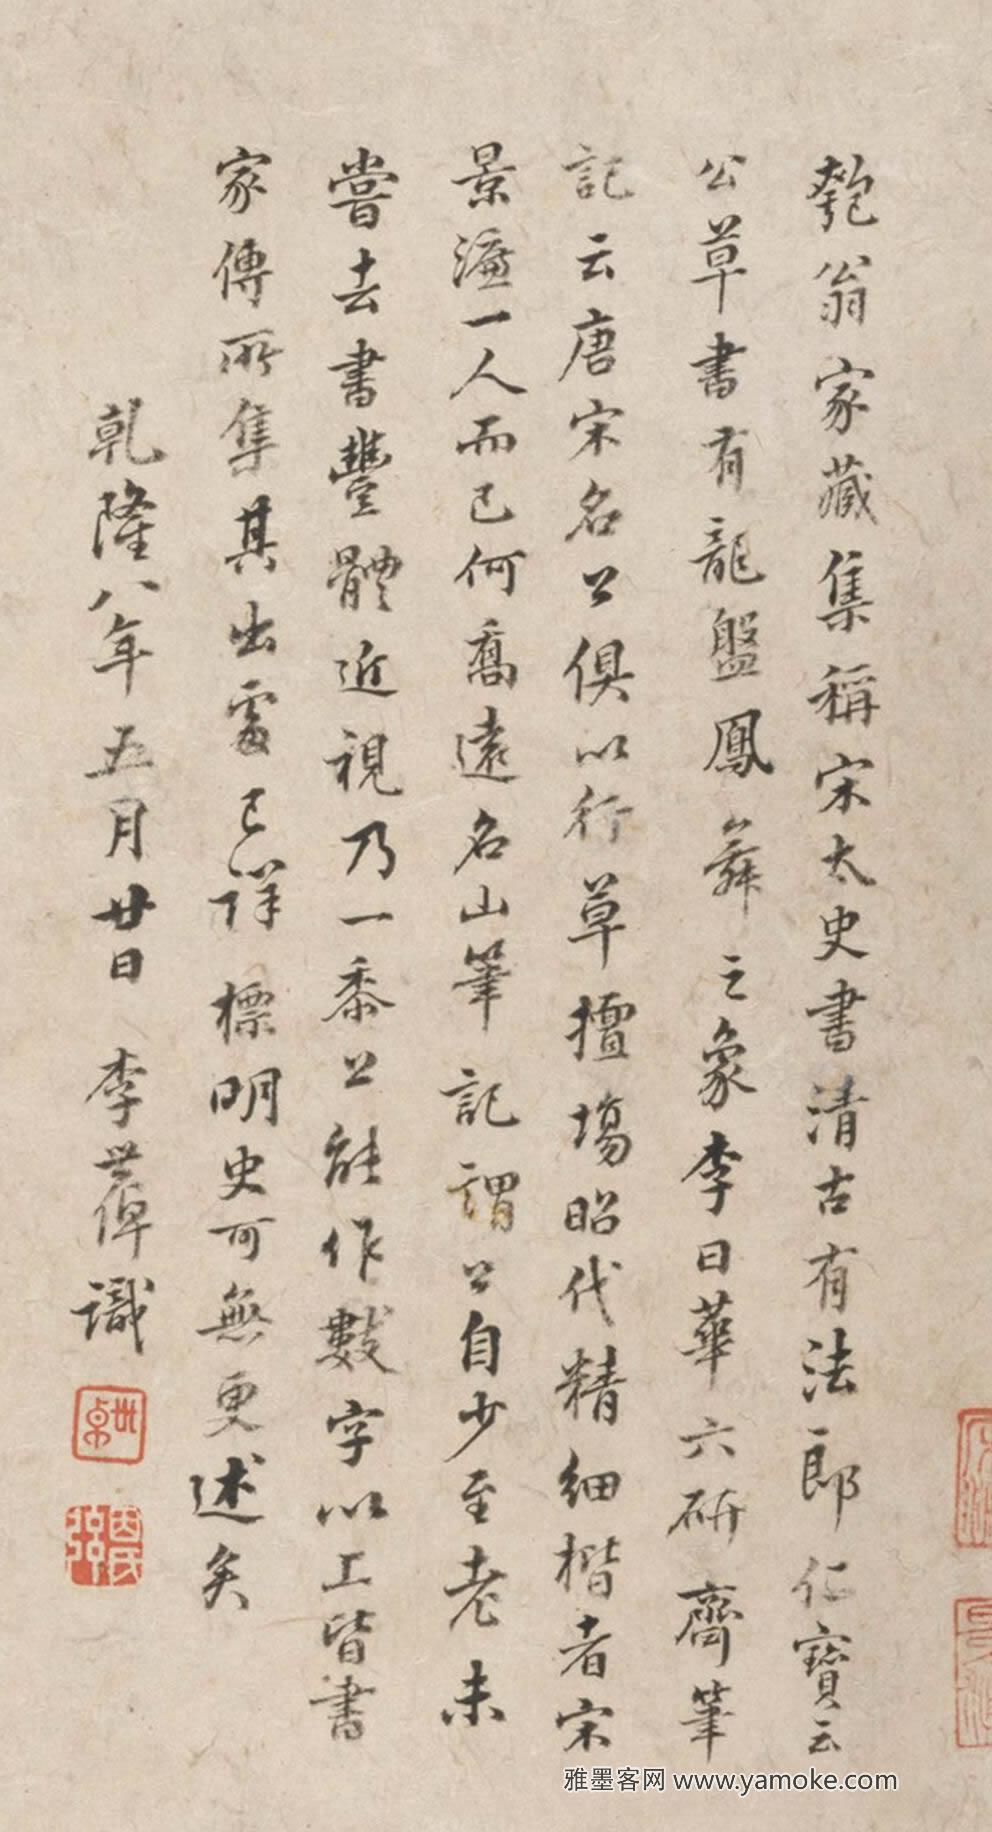 匏翁家藏集稱宋太史書清古有法郎仁寶云
公草書有龍盤鳳舞之象李日華六研齋筆
記云唐宋名公俱以行草擅場昭代精細楷者宋
景濂一人而已何喬遠名山筆記謂公自少至老未
嘗去書豐體近視乃一黍上能作數字以工皆書
家傳所集其出處已詳標明史可無更述矣
乾隆八年五月廿日 李世倬識
世倬
雅墨客网 www.yamoke.com